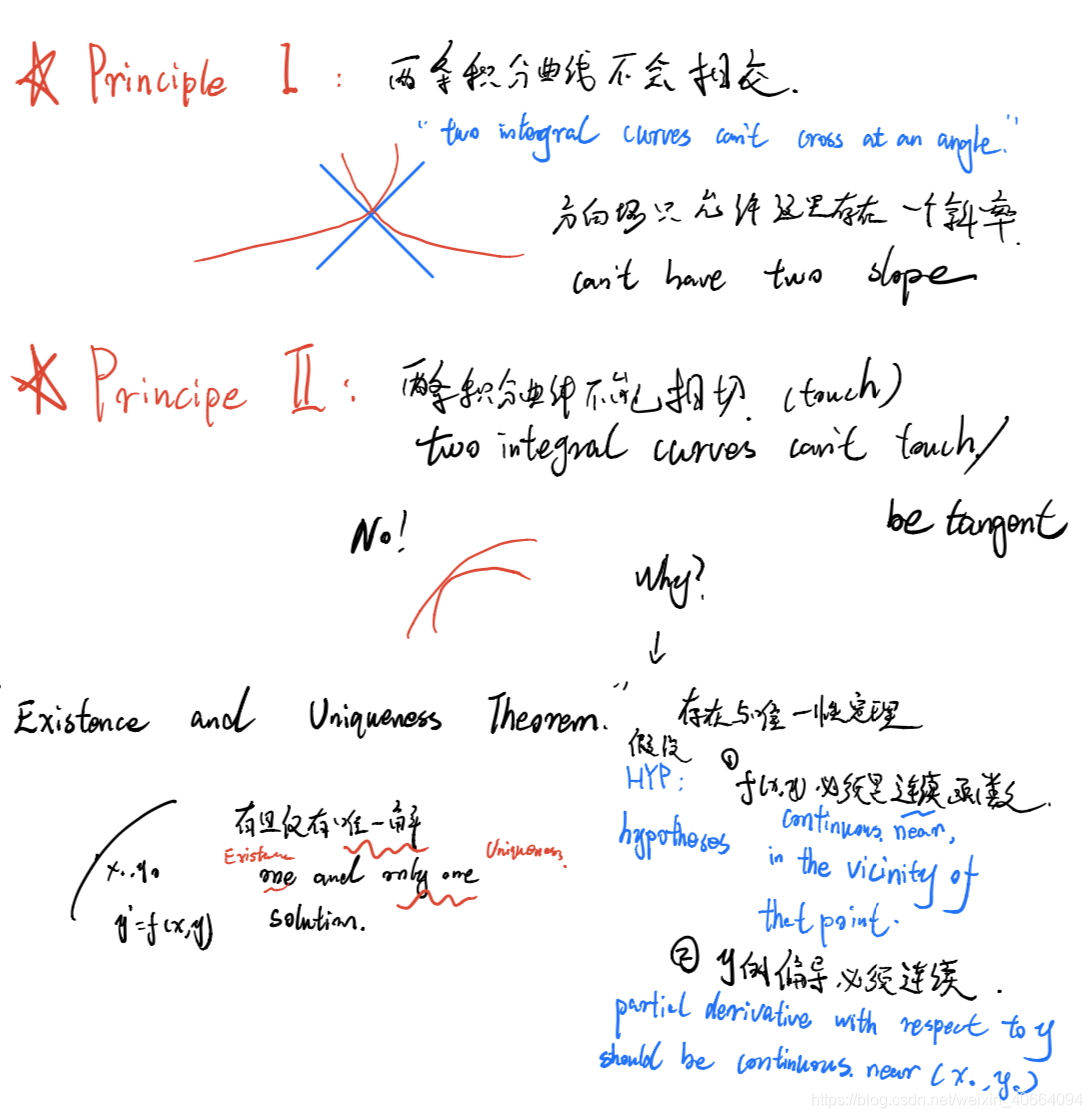 Principle I : 两条积分曲线不会相交.
"two integral curves can't cross at an angle."
方向场只允许这里存在一个斜率.
can't have two slope
Principe II : 两条积分曲线不能相切. (touch)
two integral curves can't touch/
be tangent
No!
Why?
↓
"Existence and Uniqueness Theorem." 存在与唯一性定理
假设
HYP: ① f(x,y) 必须是连续函数.
hypotheses
continuous near,
in the vicinity of
thet point.
有且仅有唯一解
Existence Uniqueness
x₀, y₀ one and only one
y'=f(x,y) solution.
② y的偏导必须连续.
partial derivative with respect to y
should be continuous near (x₀, y₀)
https://blog.csdn.net/weixin_40664094